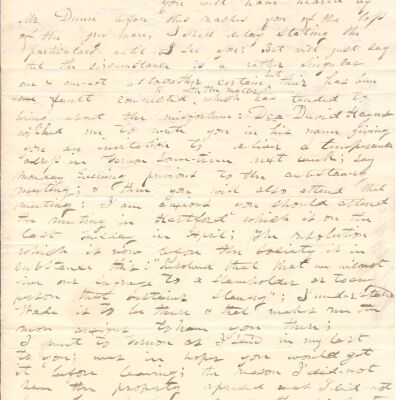 you will have heard by
Mr. Dunn before this reaches you of the loss
of the grey mare, I shall delay stating the
particulars until I see you; But will just say
that the circumstance is a rather singular
one & one not altogether certain but their has been
some fault connected with the matter which has tended to
bring about the misfortune: Dea David Hayes
wished me to write you in his name giving
you an invitation to deliver a temperance
address in Vernon some-time next week; say
monday Evening previous to the antislavery
meeting; & then you will also attend that
meeting: I am anxious you should attend
the meeting in Hartford which is on the
last tuesday in April; The resolution
which is now before the society is in
substance this: "Resolved that that we will not
give our suffrage to a slaveholder or to any
person that sustains slavery"; I understand
Wade is to be there & that makes me the
more anxious to have you there;
I went to Vernon as I said in my last
to you; was in hopes you would get
it before leaving; the reason I did not
have the property apprised was I did not